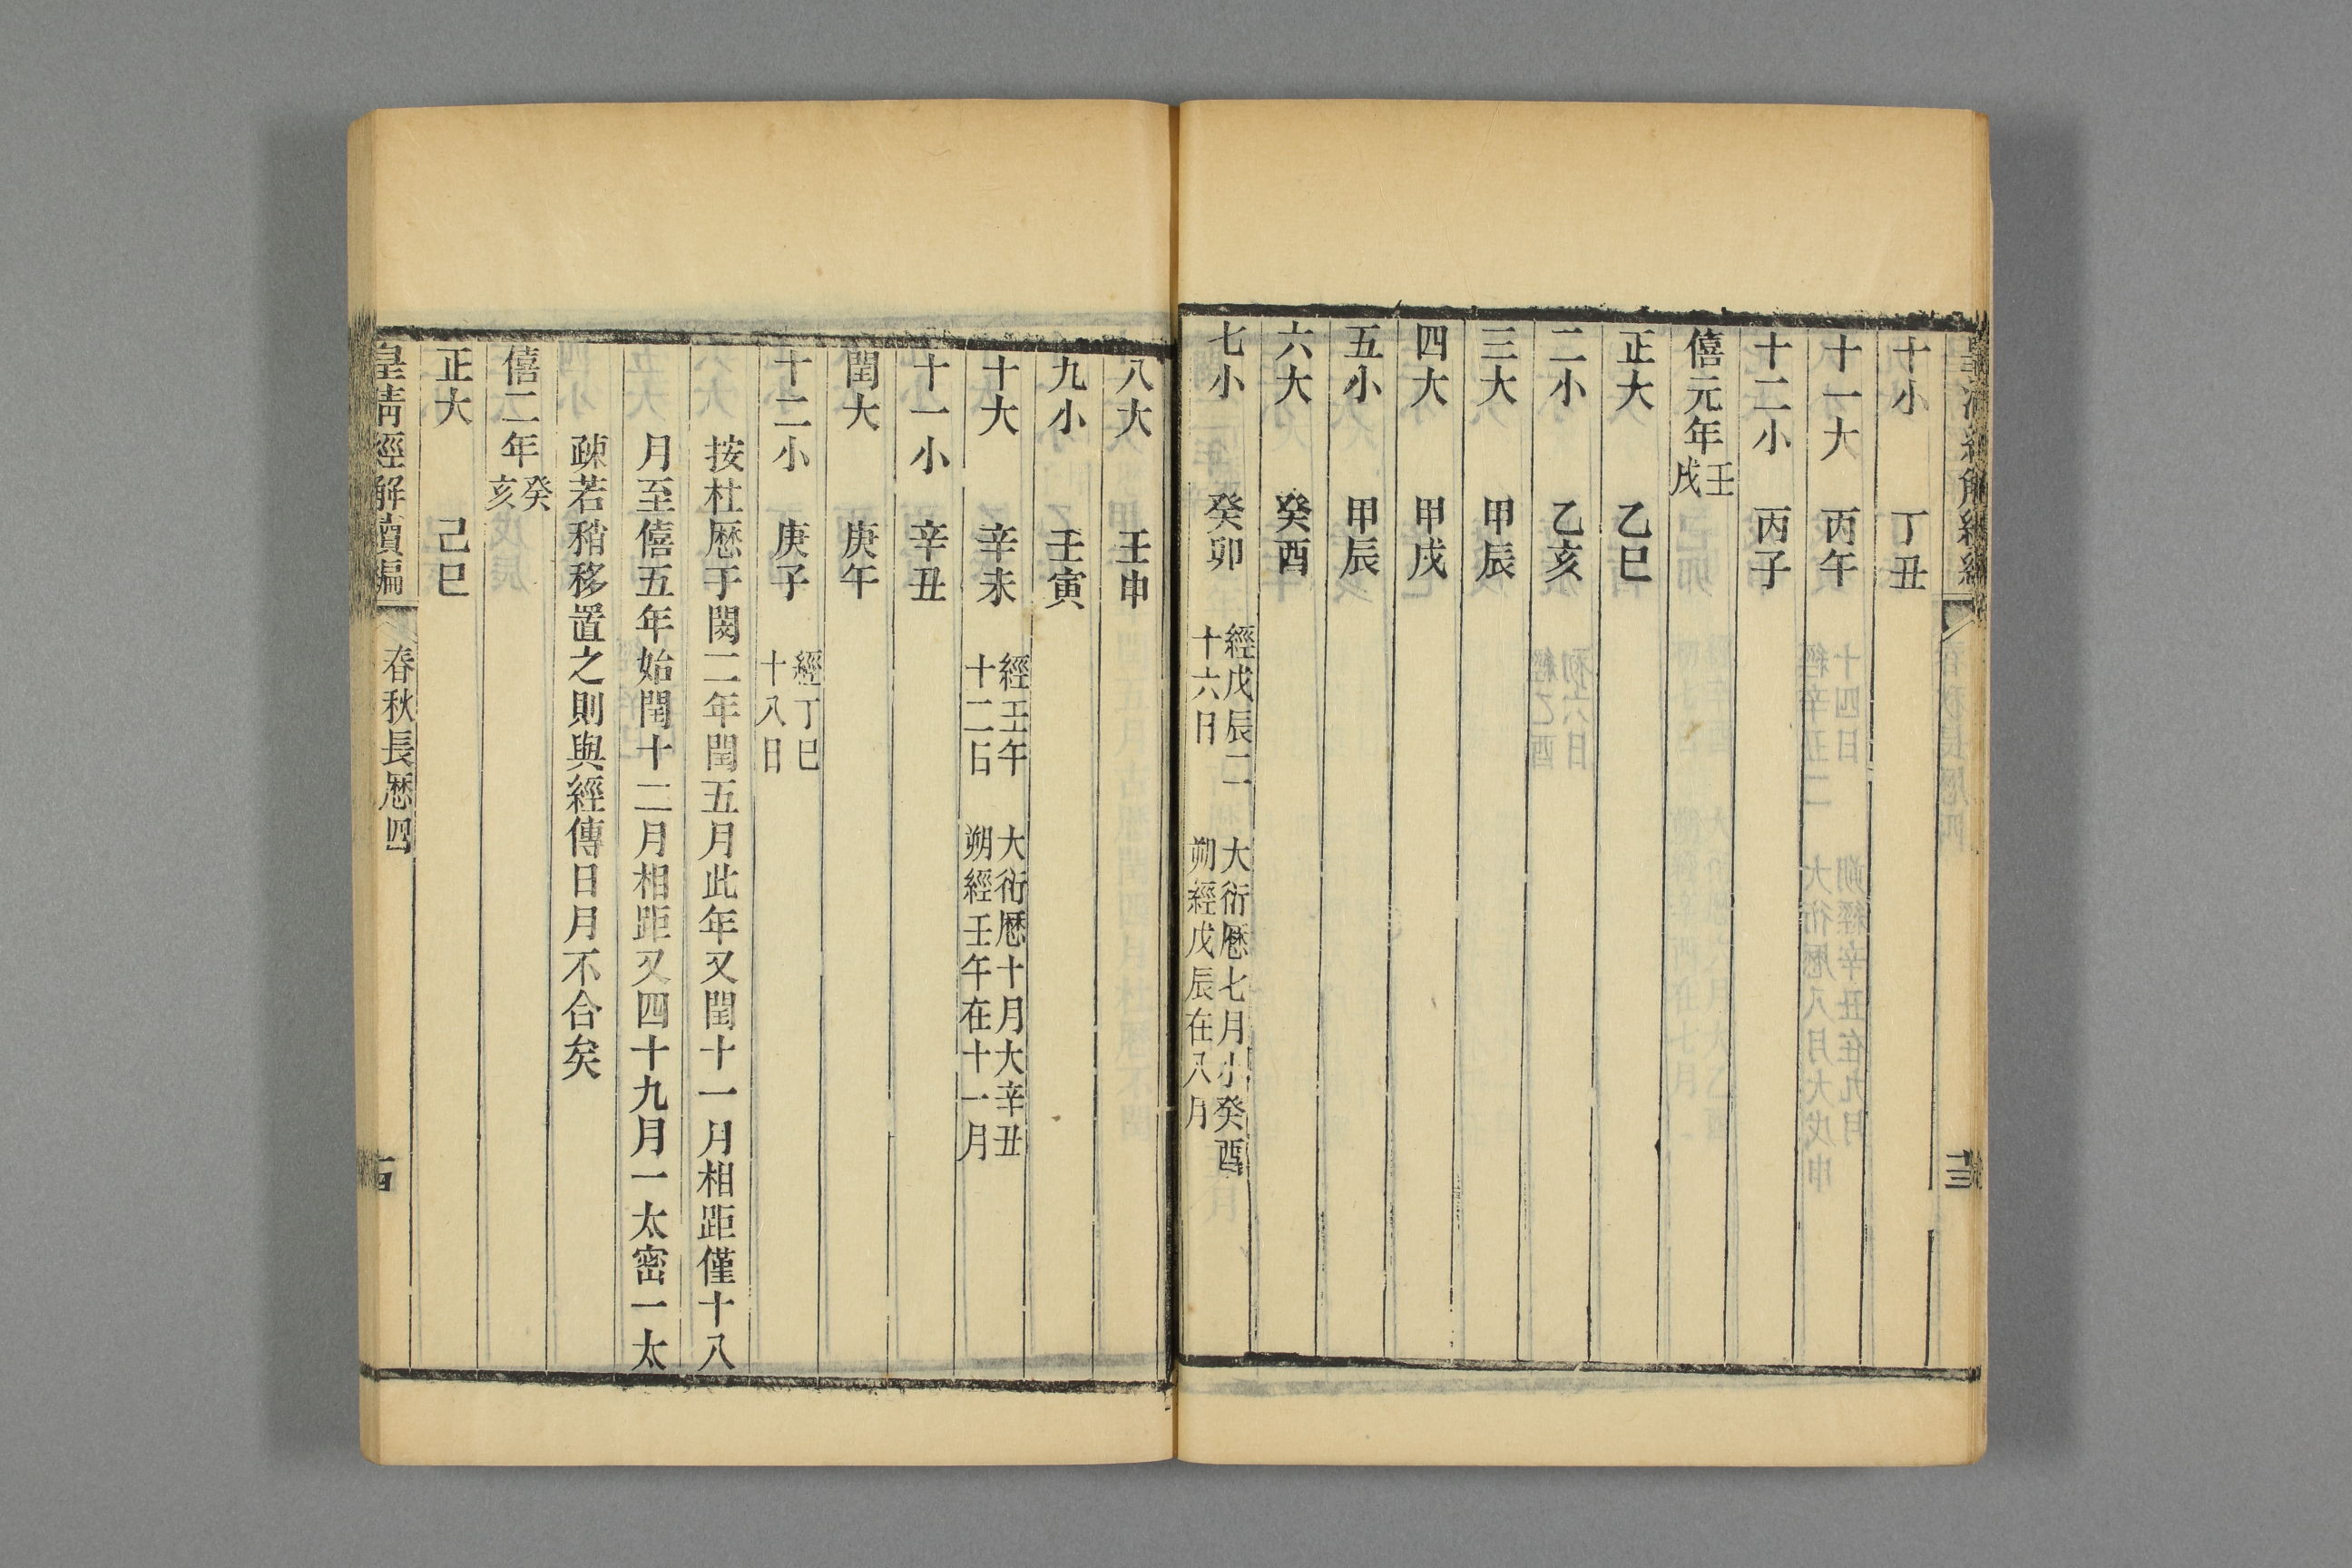 十小　丁丑
十一大　丙午
十二小　丙子
僖元年壬戌
正大　乙巳
二小　乙亥
三大　甲辰
四大　甲戌
五小　甲辰
六大　癸酉
七小　癸卯　經戊辰二十六日　大衍厯七月小癸酉朔經戊辰在八月
八大　壬申
九小　壬寅
十大　辛未　經壬午十二日　大衍厯十月大辛丑朔經壬午在十一月
十一小　辛丑
閏大　庚午
十二小　庚子　經丁巳十八日
按杜厯于閔二年閏五月此年又閏十一月相距僅十八
月至僖五年始閏十二月相距又四十九月一太密一太
疎若稍移置之則與經傳日月不合矣
僖二年癸亥
正大　己巳
皇清經解續編　春秋長厯四